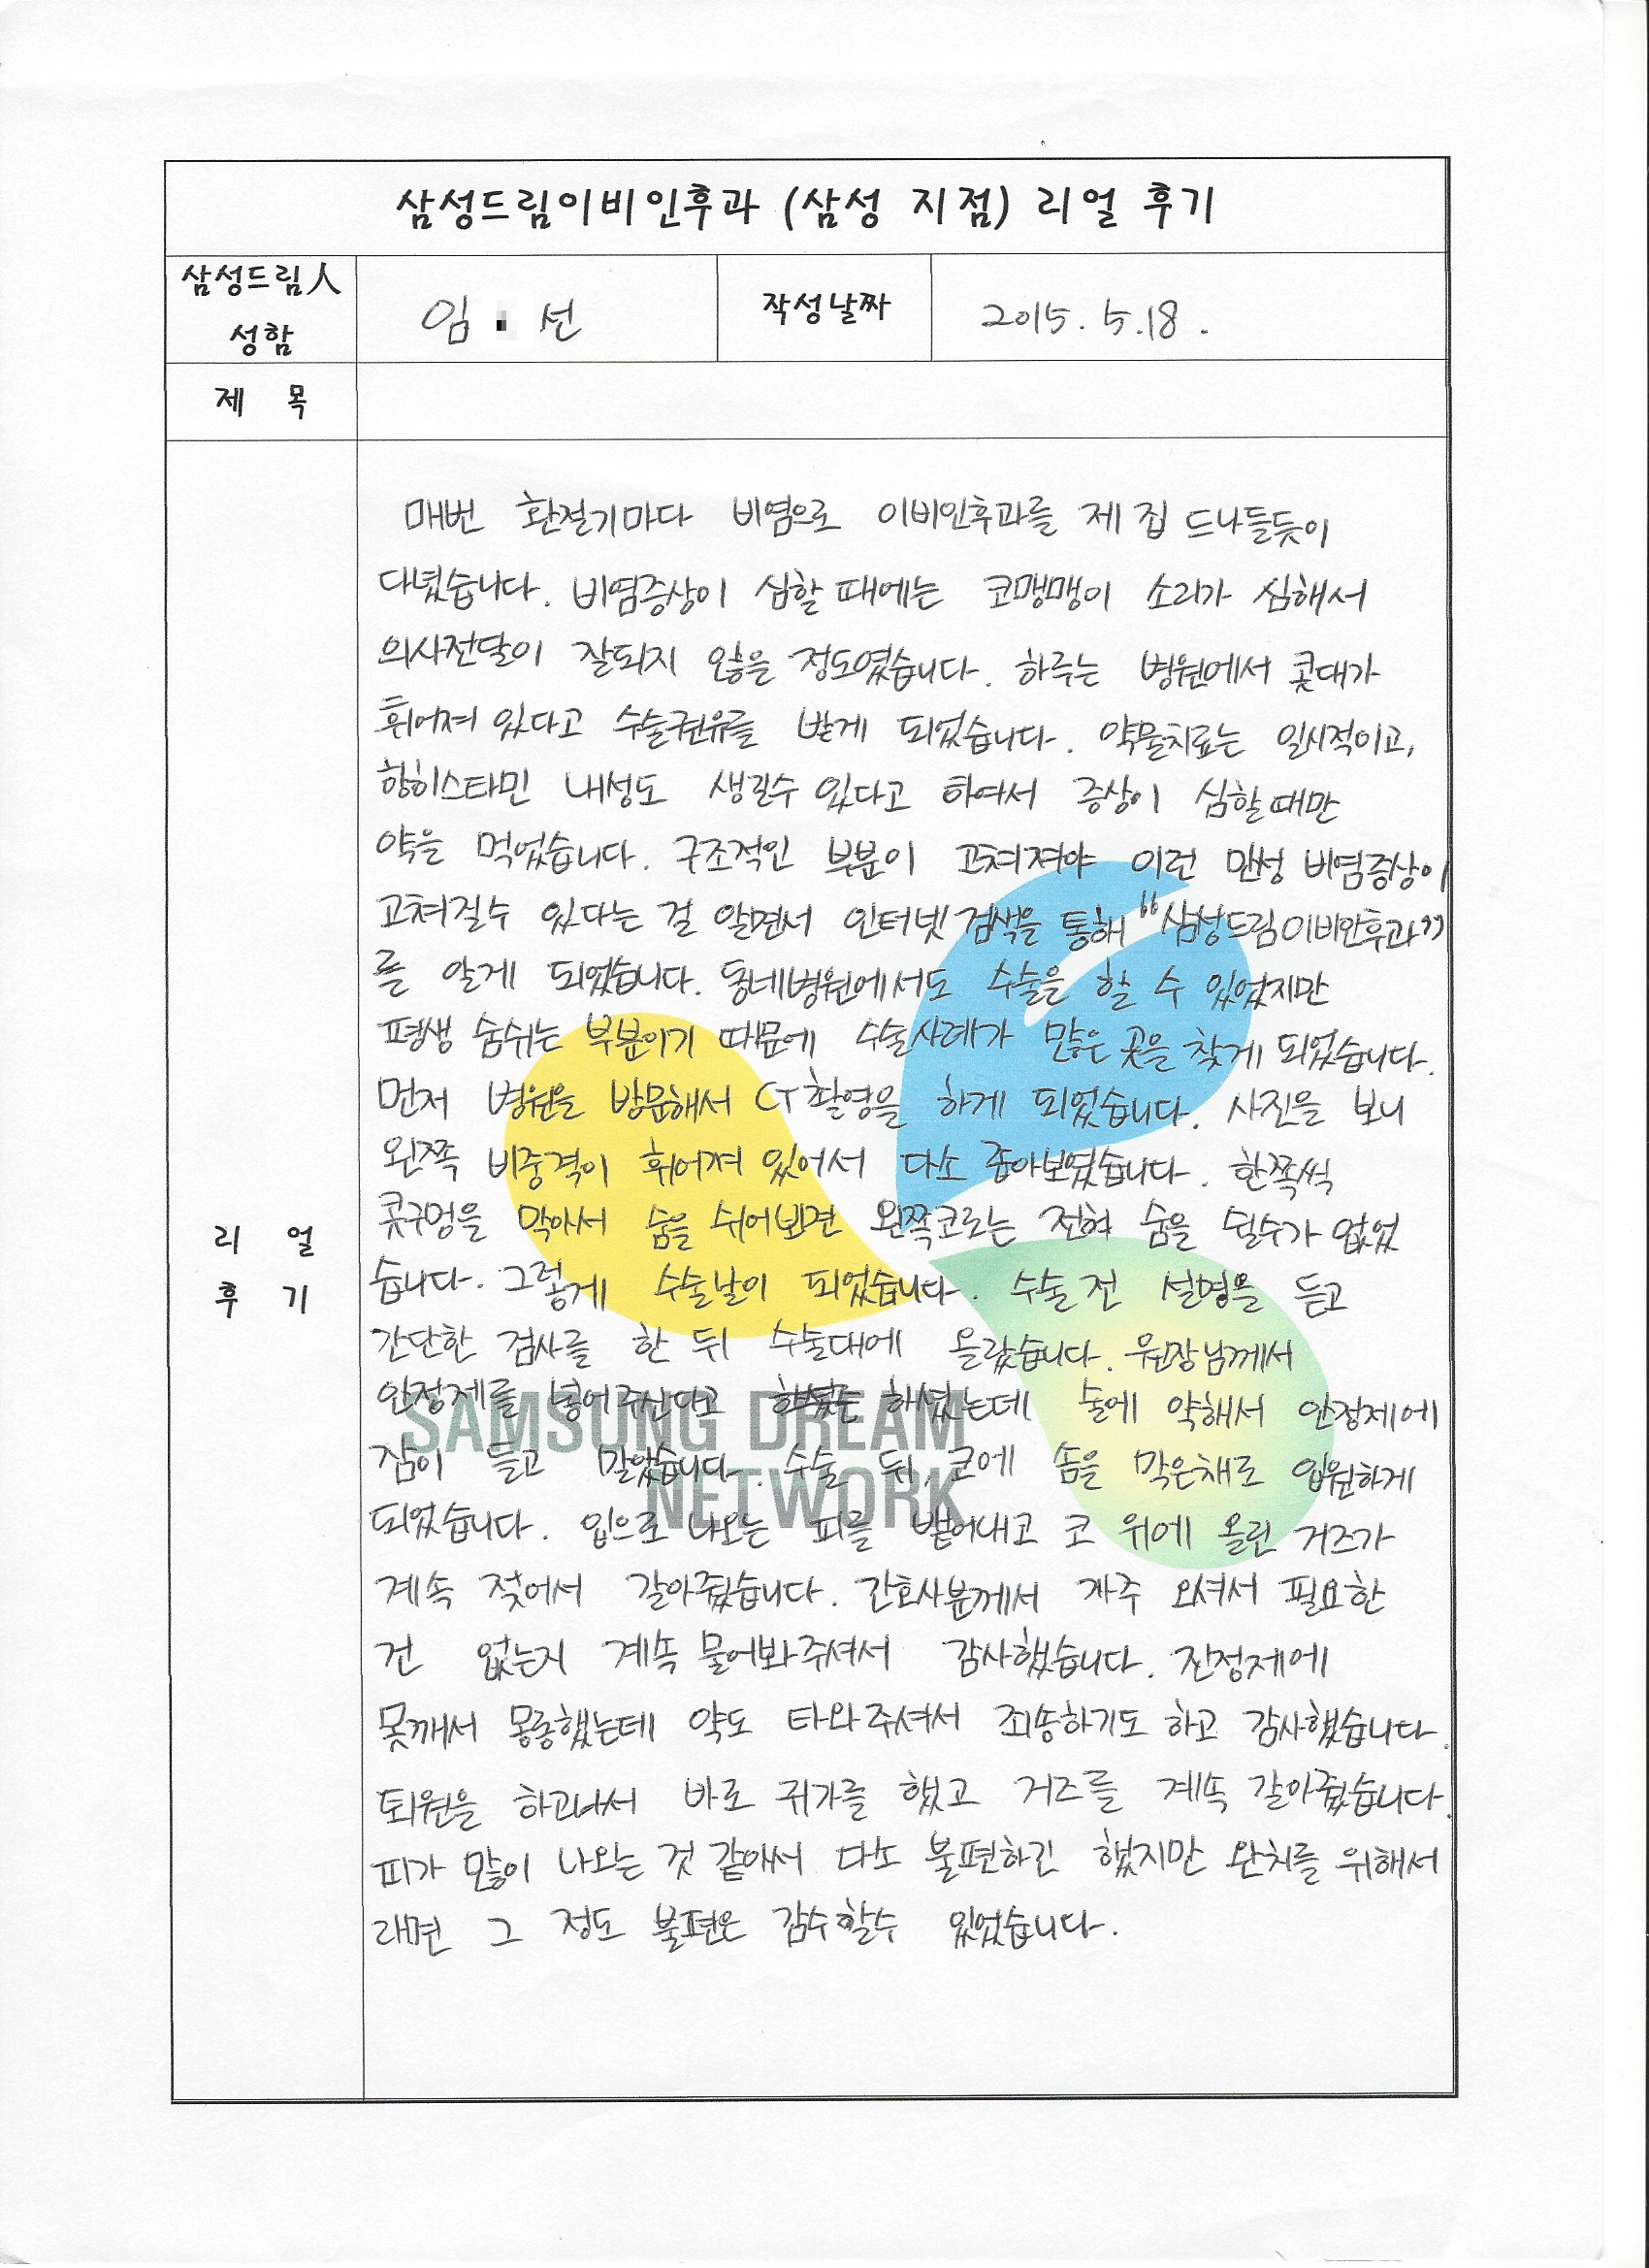 삼성드림이비인후과 (삼성 지점) 리얼 후기
삼성드림人
성함
임 선
작성날짜
2015. 5. 18.
제 목
매번 환절기마다 비염으로 이비인후과를 제 집 드나들듯이
다녔습니다. 비염증상이 심할 때에는 코맹맹이 소리가 심해서
의사전달이 잘되지 않을 정도였습니다. 하루는 병원에서 콧대가
휘어져 있다고 수술권유를 받게 되었습니다. 약물치료는 일시적이고,
항히스타민 내성도 생길수 있다고 하여서 증상이 심할때만
약을 먹었습니다. 구조적인 부분이 고쳐져야 이런 만성 비염증상이
고쳐질수 있다는 걸 알면서 인터넷 검색을 통해 "삼성드림이비인후과"
를 알게 되었습니다. 동네병원에서도 수술을 할 수 있었지만
평생 숨쉬는 부분이기 때문에 수술사례가 많은 곳을 찾게 되었습니다.
먼저 병원을 방문해서 CT촬영을 하게 되었습니다. 사진을 보니
왼쪽 비중격이 휘어져 있어서 다소 좁아보였습니다. 한쪽씩
콧구멍을 막아서 숨을 쉬어보면 왼쪽코로는 전혀 숨을 쉴수가 없었
습니다. 그렇게 수술날이 되었습니다. 수술 전 설명을 듣고
간단한 검사를 한 뒤 수술대에 올랐습니다. 원장님께서
안정제를 넣어주신다고 하셨는데 술에 약해서 안정제에
잠이 들고 말았습니다. 수술 뒤, 코에 솜을 막은채로 입원하게
되었습니다. 입으로 나오는 피를 뱉어내고 코 위에 올린 거즈가
계속 젖어서 갈아줬습니다. 간호사분께서 자주 오셔서 필요한
건 없는지 계속 물어봐주셔서 감사했습니다. 진정제에
못깨서 몽롱했는데 약도 타와주셔서 죄송하기도 하고 감사했습니다.
퇴원을 하고나서 바로 귀가를 했고 거즈를 계속 갈아줬습니다.
피가 많이 나오는 것 같아서 다소 불편하긴 했지만 완치를 위해서
라면 그 정도 불편은 감수할수 있었습니다.
리 얼
후 기
SAMSUNG DREAM
NETWORK